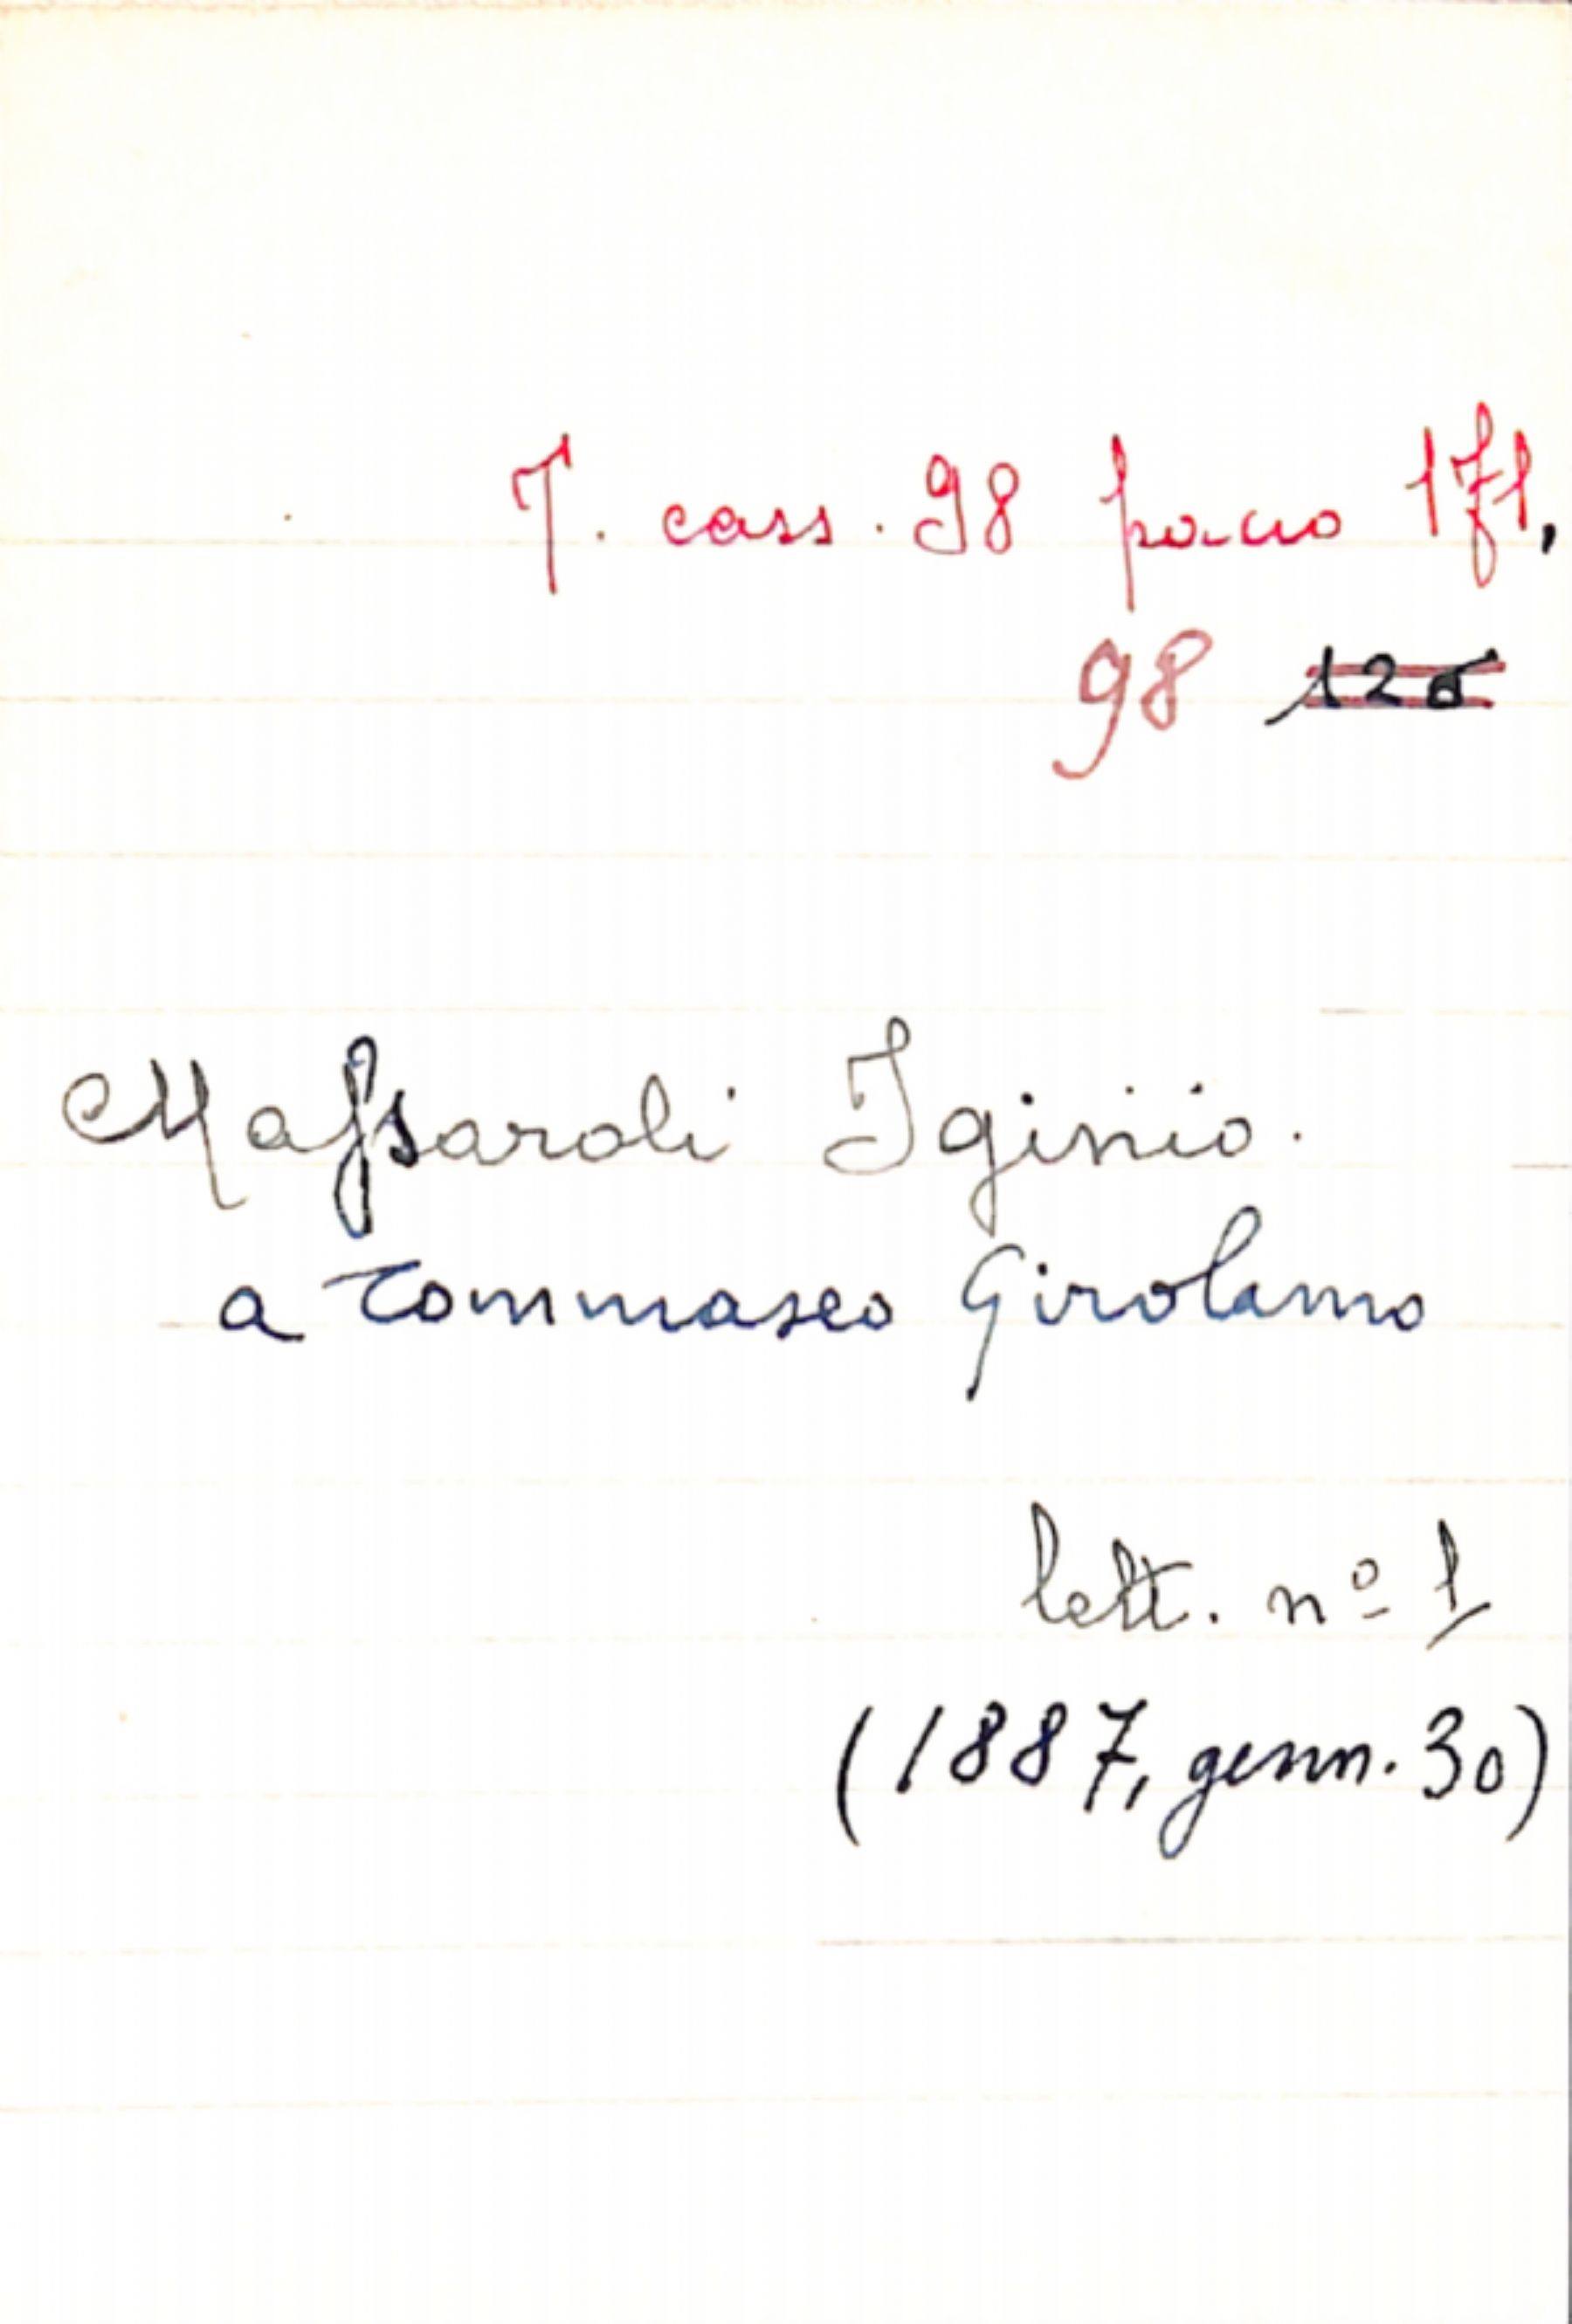 T. cass. 98 pacco 171,
98 126
Massaroli Iginio.
a Tommaseo Girolamo
lett. nº 1
(1887, genn. 30)